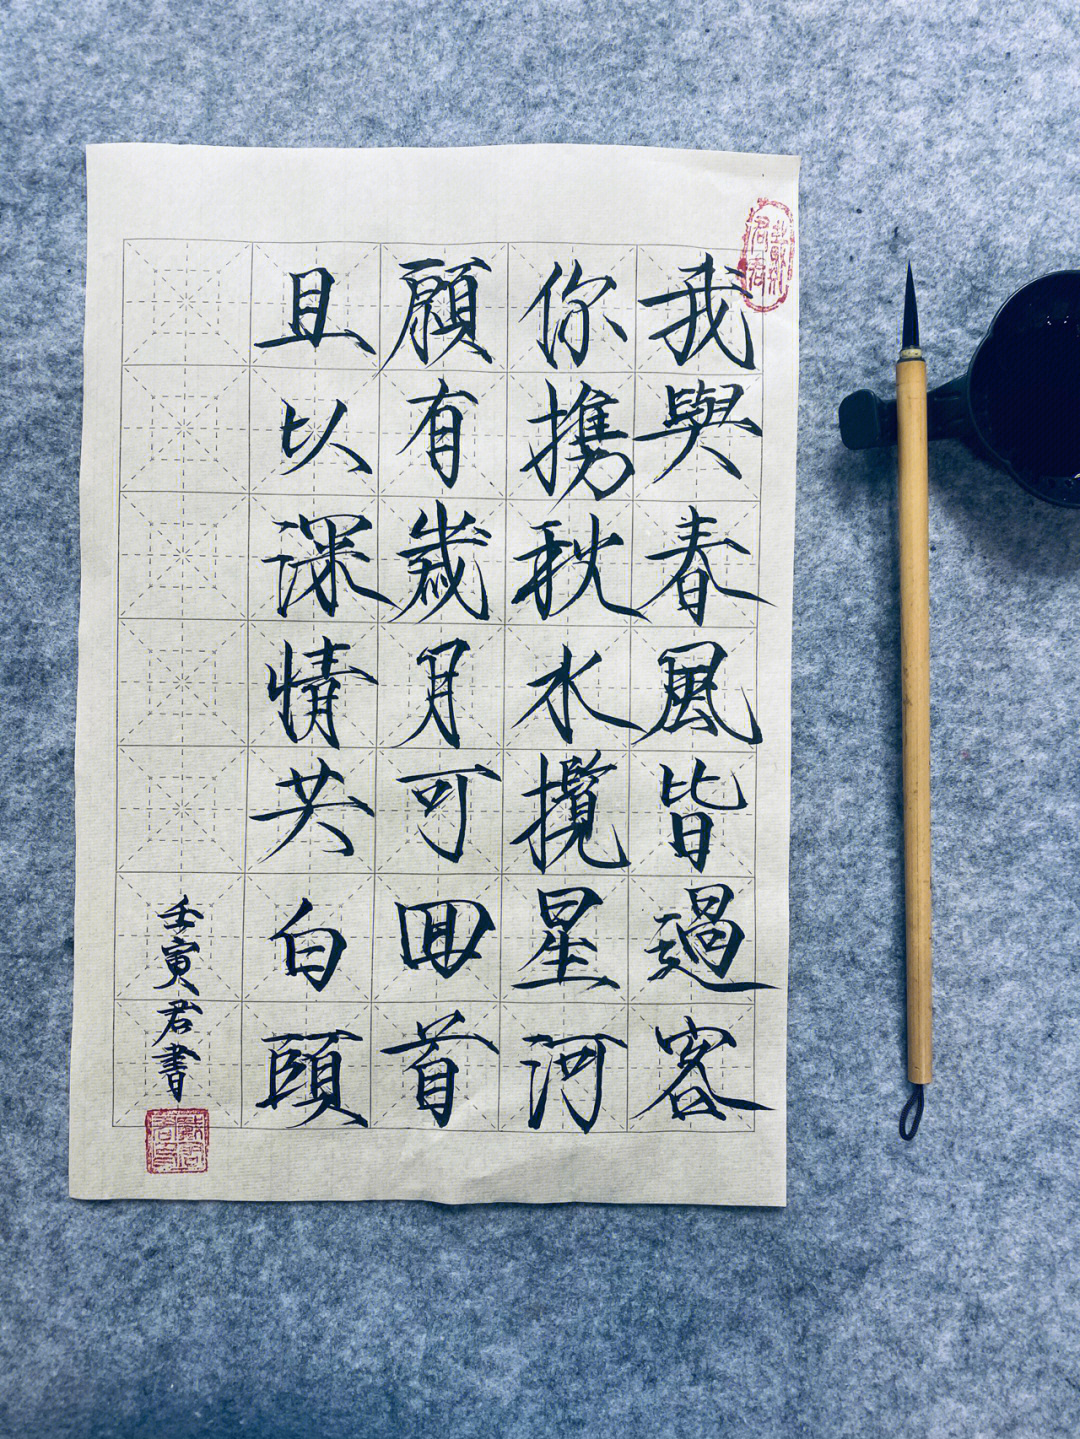 我與春風皆過客
你携秋水攬星河
願有歲月可回首
且以深情共白頭
壬寅君書